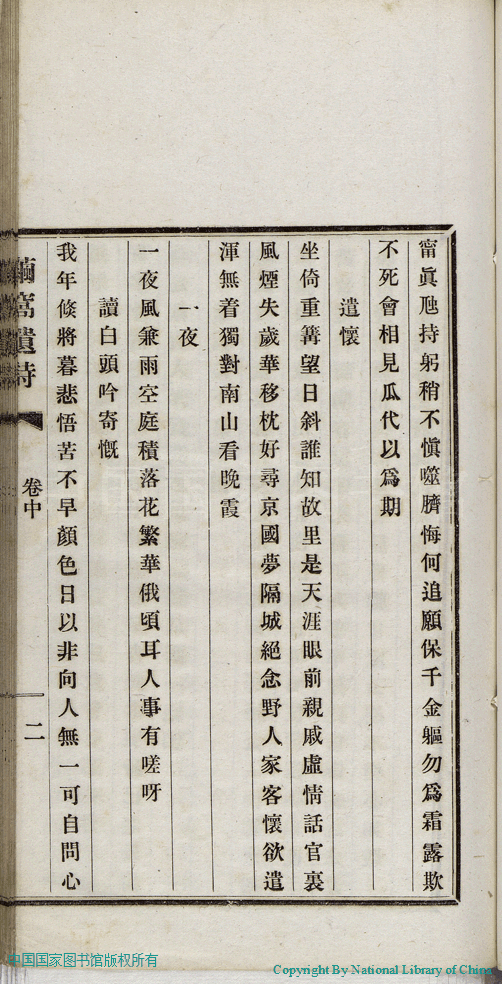 甯眞虺持躬稍不愼噬臍悔何追願保千金軀勿爲霜露欺
不死會相見瓜代以爲期
遣懷
坐倚重篝望日斜誰知故里是天涯眼前親戚虛情話官裏
風煙失歲華移枕好尋京國夢隔城絕念野人家客懷欲遣
渾無着獨對南山看晚霞
一夜
一夜風兼雨空庭積落花繁華俄頃耳人事有嗟呀
讀白頭吟寄慨
我年倏將暮悲悟苦不早顏色日以非向人無一可自問心
窩遺詩
卷中
二
中国国家图书馆版权所有
Copyright By National Library of China